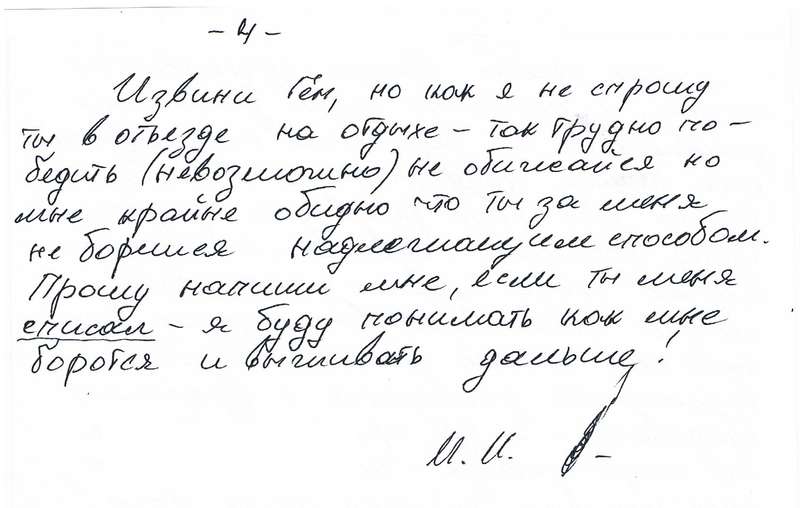 - 4 -
Извини Гён, но как я не спрошу
ты в отъезде на отдыхе - так трудно по-
бедить (невозможно) не обижайся но
мне крайне обидно что ты за меня
не боришся надлежащуим способом.
Прошу напиши мне, если ты меня
списал - я буду понимать как мне
боротся и выживать дальше!
И. И.